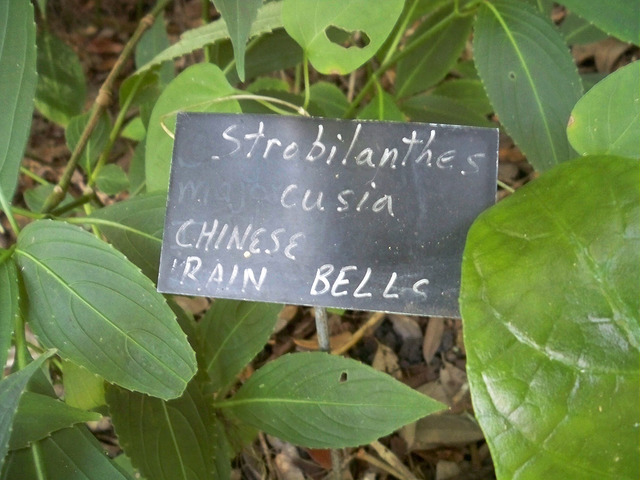 Strobilanthes
cusia
CHINESE
RAIN BELLS